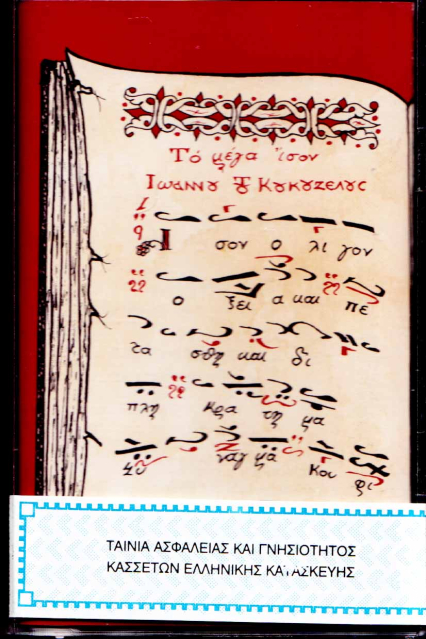 Τό μέγα ἴσον
Ιωάννου τȣ Κουκουζέλους
Ι σον ο λι γον
ο ξει α και πε
τα σθη και δι
πλη κρα τη μα
κου φι
ΤΑΙΝΙΑ ΑΣΦΑΛΕΙΑΣ ΚΑΙ ΓΝΗΣΙΟΤΗΤΟΣ
ΚΑΣΣΕΤΩΝ ΕΛΛΗΝΙΚΗΣ ΚΑΤΑΣΚΕΥΗΣ